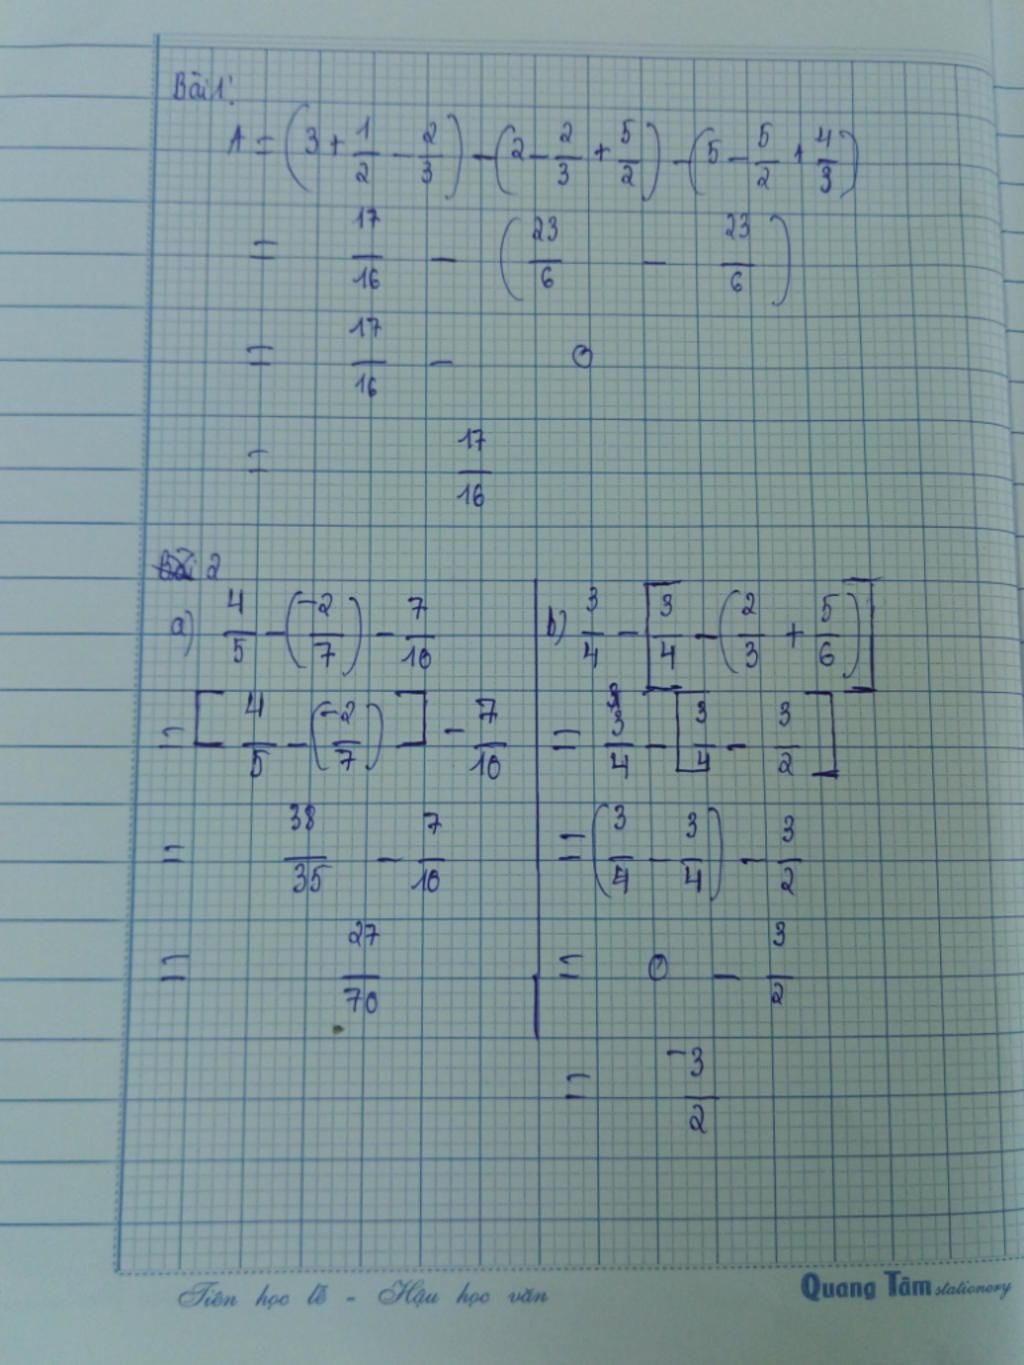 Bài 1:
A = (3 + 1/2 - 2/3) - (2 - 2/3 + 5/2) - (5 - 5/2 + 4/3)
= 17/16 - (23/6 - 23/6)
= 17/16 - 0
= 17/16
Bài 2
a) 4/5 - (-2/7) - 7/10
= [4/5 - (-2/7)] - 7/10
= 38/35 - 7/10
= 27/70
b) 3/4 - [3/4 - (2/3 + 5/6)]
= 3/4 - [3/4 - 3/2]
= (3/4 - 3/4) - 3/2
= 0 - 3/2
= -3/2
Tiên học lễ - Hậu học văn
Quang Tâm stationery